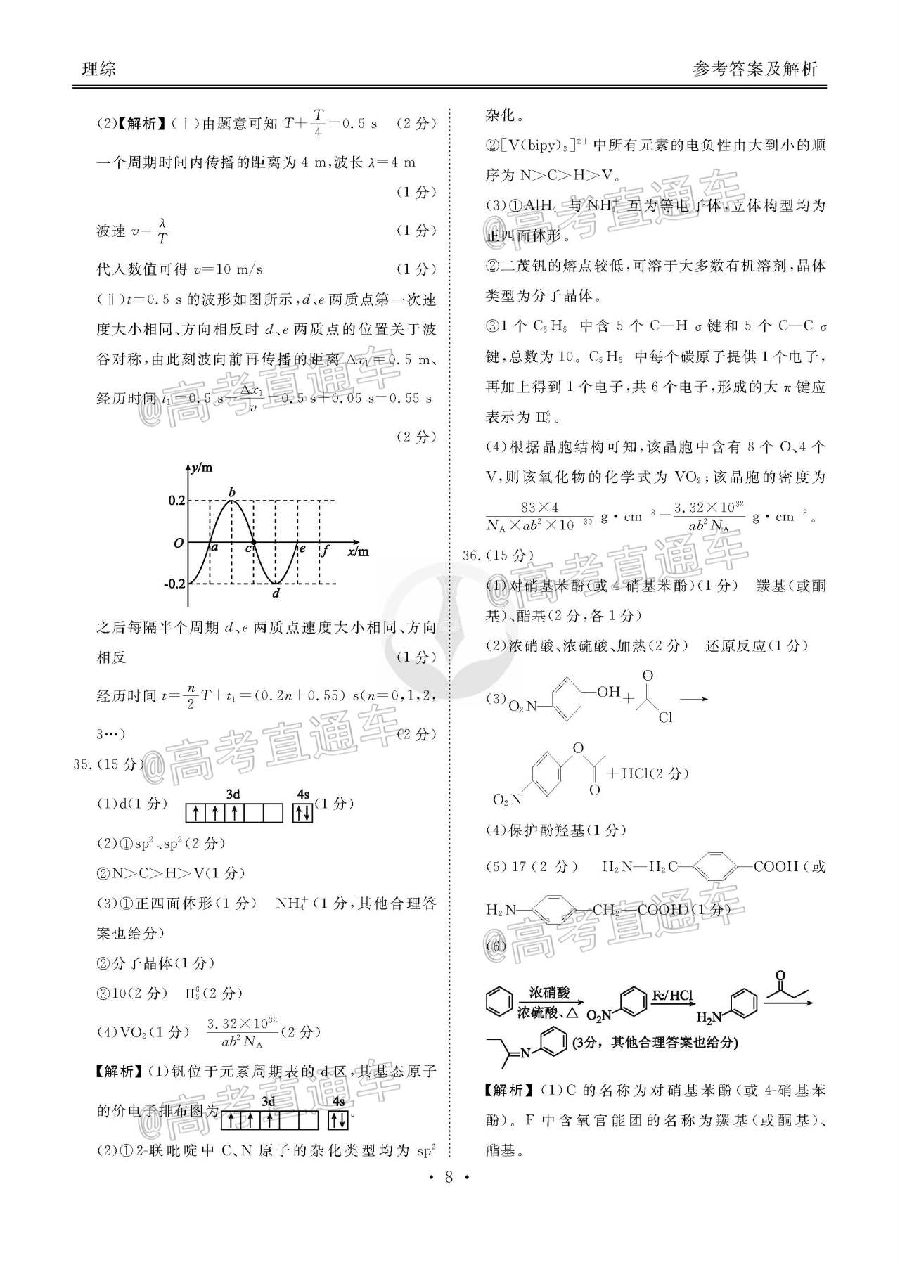 理综
参考答案及解析
(2)【解析】(Ⅰ)由题意可知 T+T/4=0.5 s (2分)
一个周期时间内传播的距离为 4 m,波长 λ=4 m
(1分)
波速 v=λ/T (1分)
代入数值可得 v=10 m/s (1分)
(Ⅱ)t=0.5 s的波形如图所示,d、e两质点第一次速
度大小相同、方向相反时d、e两质点的位置关于波
谷对称,由此刻波向前再传播的距离 Δx₁=0.5 m、
经历时间 t₁=0.5 s+Δx₁/v=0.5 s+0.05 s=0.55 s
(2分)
y/m
0.2
b
O
a
c
e
f
x/m
-0.2
d
之后每隔半个周期d、e两质点速度大小相同、方向
相反 (1分)
经历时间 t=n/2 T+t₁=(0.2n+0.55) s(n=0,1,2,
3…) (2分)
35.(15分)
(1)d(1分) 3d ↑ ↑ ↑ 4s ↑↓ (1分)
(2)①sp²、sp²(2分)
②N>C>H>V(1分)
(3)①正四面体形(1分) NH₄⁺(1分,其他合理答
案也给分)
②分子晶体(1分)
③10(2分) Π₅⁶(2分)
(4)VO₂(1分) 3.32×10³²/ab²N_A(2分)
【解析】(1)钒位于元素周期表的d区,其基态原子
的价电子排布图为 3d ↑ ↑ ↑ 4s ↑↓。
(2)①2-联吡啶中C、N原子的杂化类型均为sp²
杂化。
②[V(bipy)₃]²⁺中所有元素的电负性由大到小的顺
序为N>C>H>V。
(3)①AlH₄⁻与NH₄⁺互为等电子体,立体构型均为
正四面体形。
②二茂钒的熔点较低,可溶于大多数有机溶剂,晶体
类型为分子晶体。
③1个C₅H₅⁻中含5个C—H σ键和5个C—C σ
键,总数为10。C₅H₅⁻中每个碳原子提供1个电子,
再加上得到1个电子,共6个电子,形成的大π键应
表示为Π₅⁶。
(4)根据晶胞结构可知,该晶胞中含有8个O、4个
V,则该氧化物的化学式为VO₂;该晶胞的密度为
83×4/N_A×ab²×10⁻³⁰ g·cm⁻³=3.32×10³²/ab²N_A g·cm⁻³。
36.(15分)
(1)对硝基苯酚(或4-硝基苯酚)(1分) 羰基(或酮
基)、酯基(2分,各1分)
(2)浓硝酸、浓硫酸、加热(2分) 还原反应(1分)
(3) O₂N OH + O Cl
O O O₂N +HCl(2分)
(4)保护酚羟基(1分)
(5)17(2分) H₂N—H₂C— —COOH(或
H₂N— —CH₂—COOH)(1分)
(6)
浓硝酸 浓硫酸、△ O₂N Fe/HCl H₂N O
N (3分,其他合理答案也给分)
【解析】(1)C的名称为对硝基苯酚(或4-硝基苯
酚)。F中含氧官能团的名称为羰基(或酮基)、
酯基。
·8·
@高考直通车
@高考直通车
@高考直通车
@高考直通车
@高考直通车
@高考直通车
@高考直通车